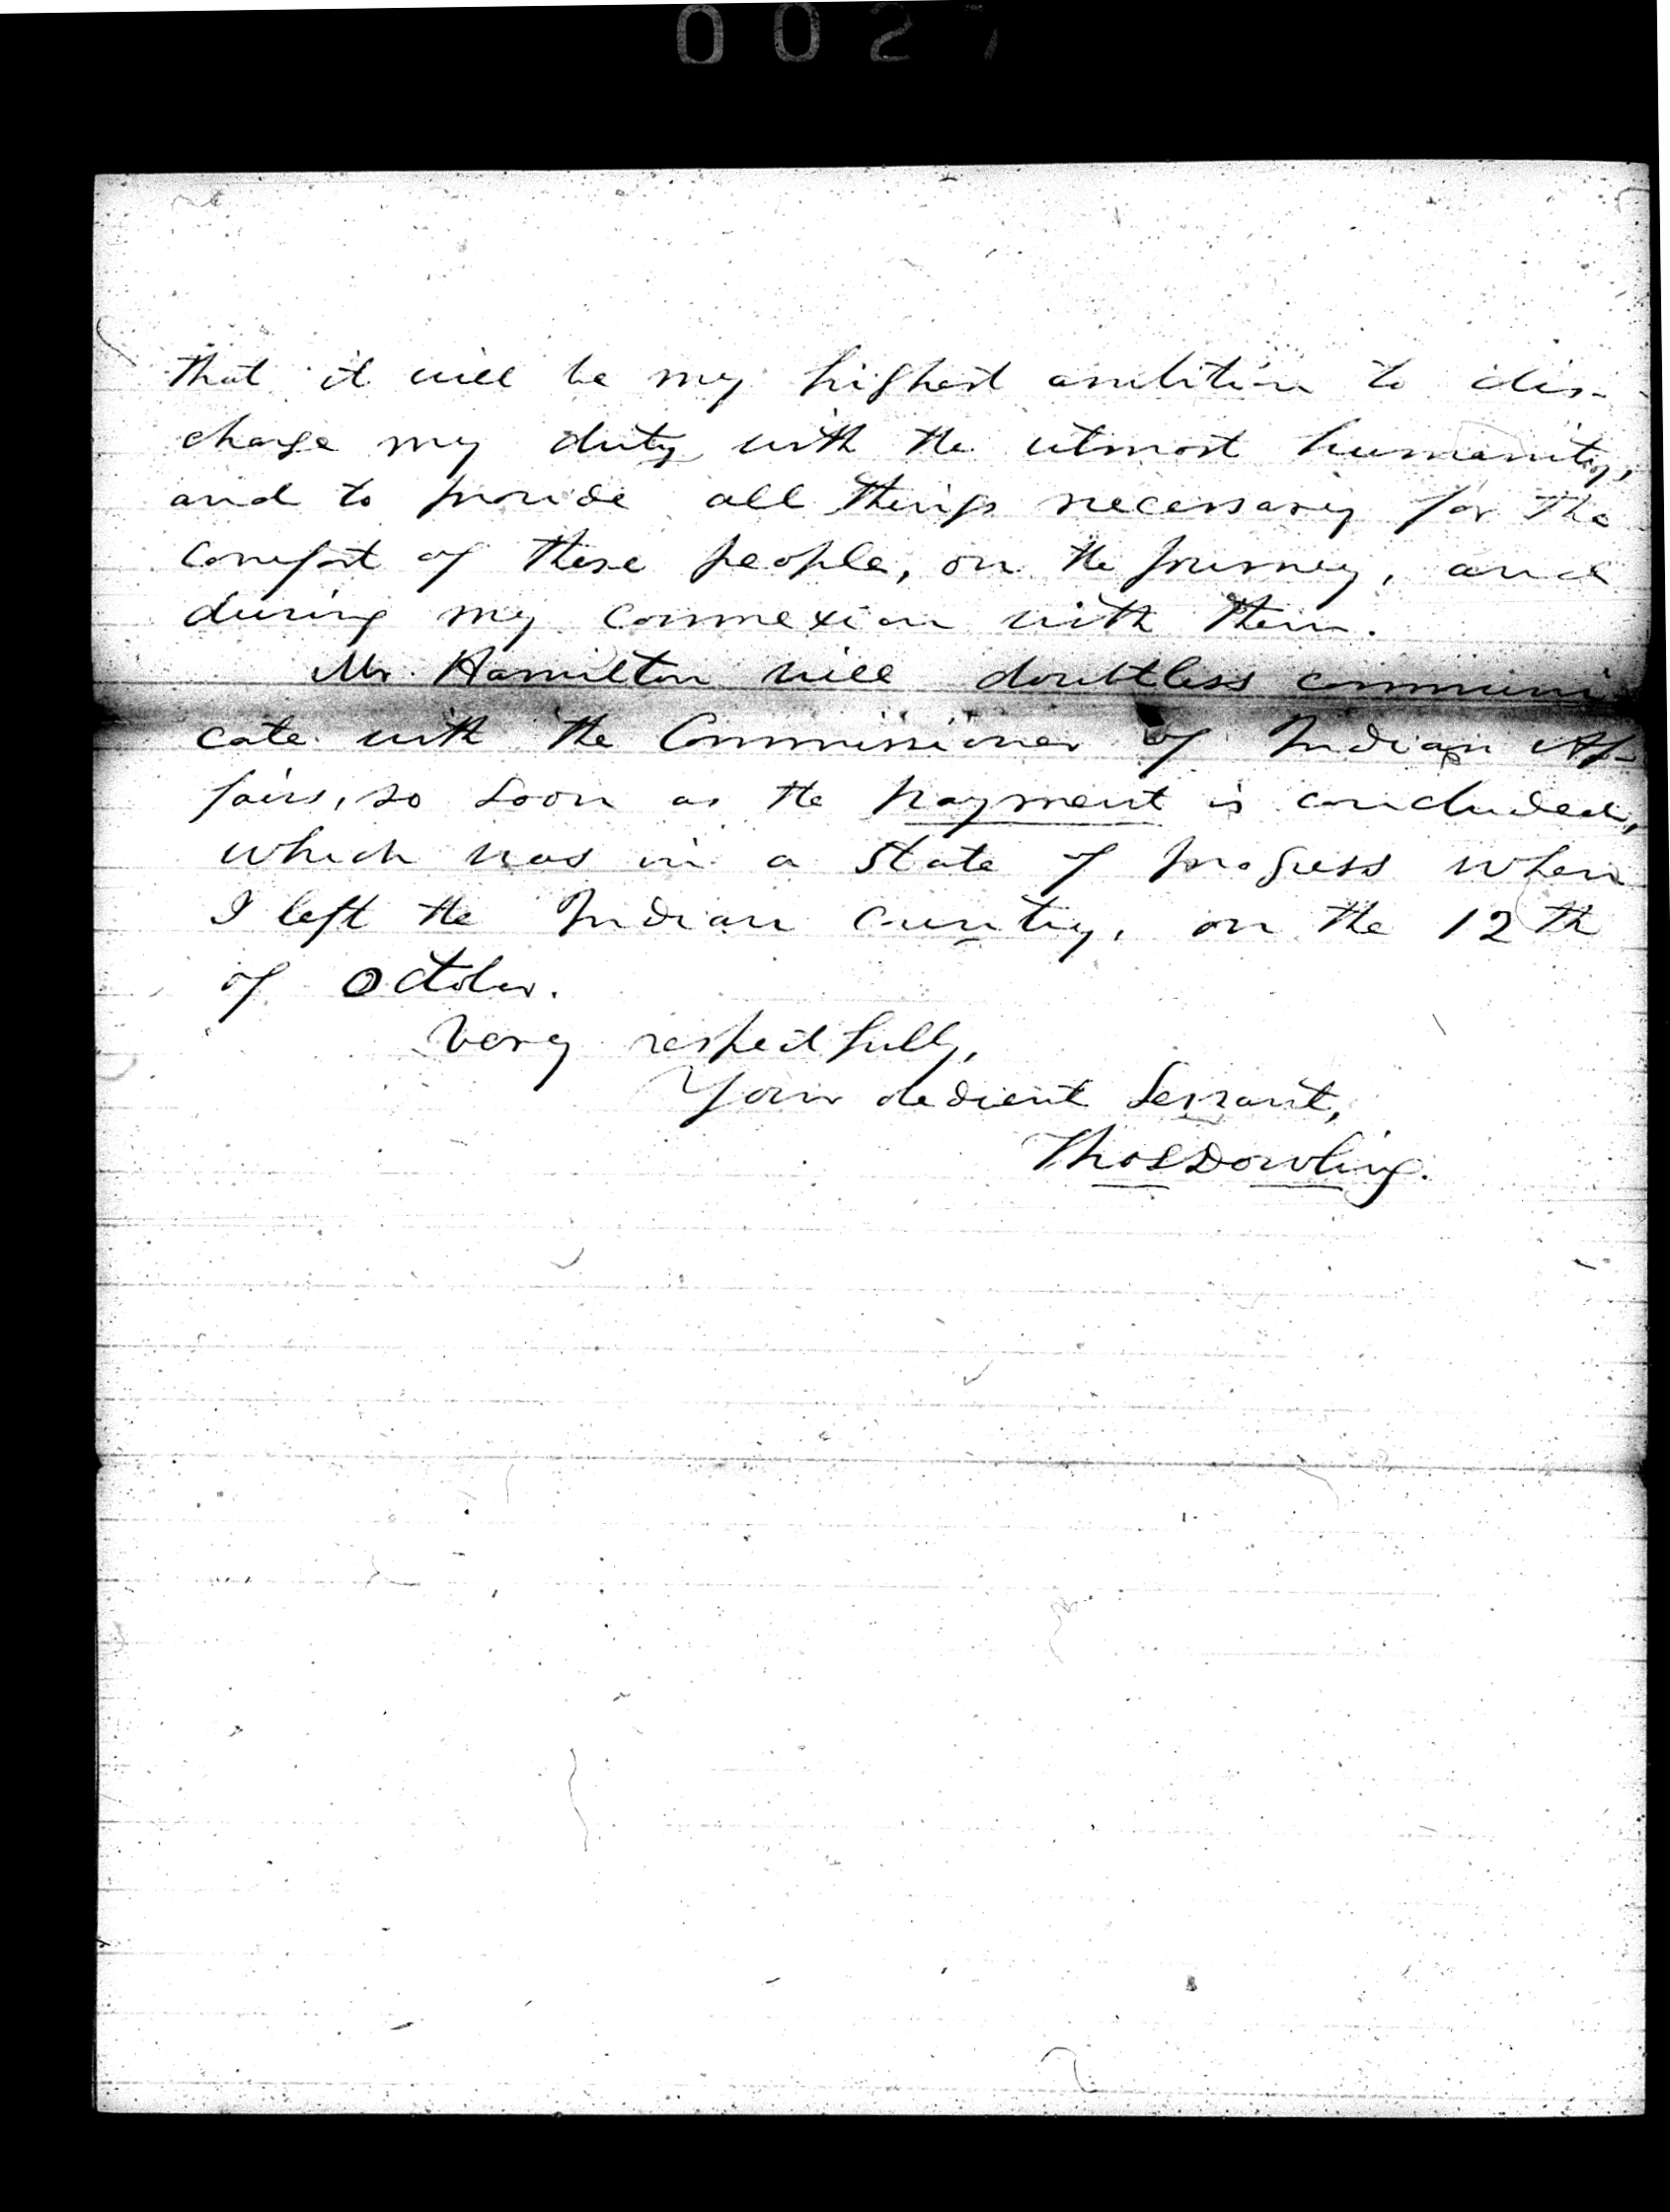 002
that it will be my highest ambition to dis-
charge my duty with the utmost humanity,
and to provide all things necessary for the
comfort of these people, on the journey, and
during my connexion with them.
Mr. Hamilton will doubtless communi
cate with the Commissioner of Indian Af-
fairs, so soon as the payment is concluded,
which was in a state of progress when
I left the Indian country, on the 12th
of October.
Very respectfully,
Your obedient servant,
Thos Dowling.